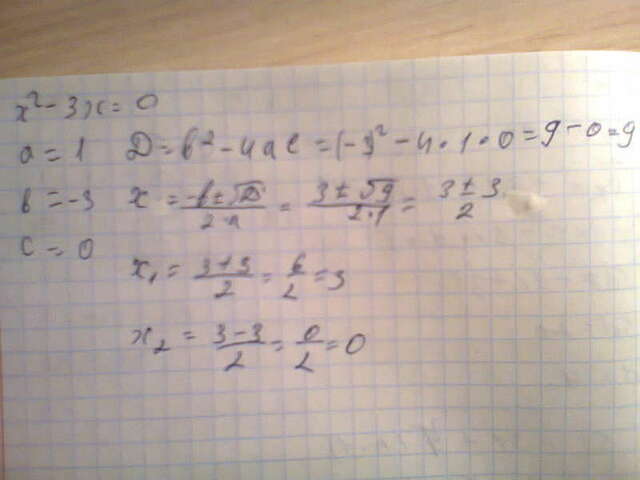 x² - 3x = 0
a = 1 D = b² - 4ac = (-3)² - 4·1·0 = 9 - 0 = 9
b = -3 x = (-b ± √D)/(2·a) = (3 ± √9)/(2·1) = (3 ± 3)/2
c = 0
x₁ = (3+3)/2 = 6/2 = 3
x₂ = (3-3)/2 = 0/2 = 0